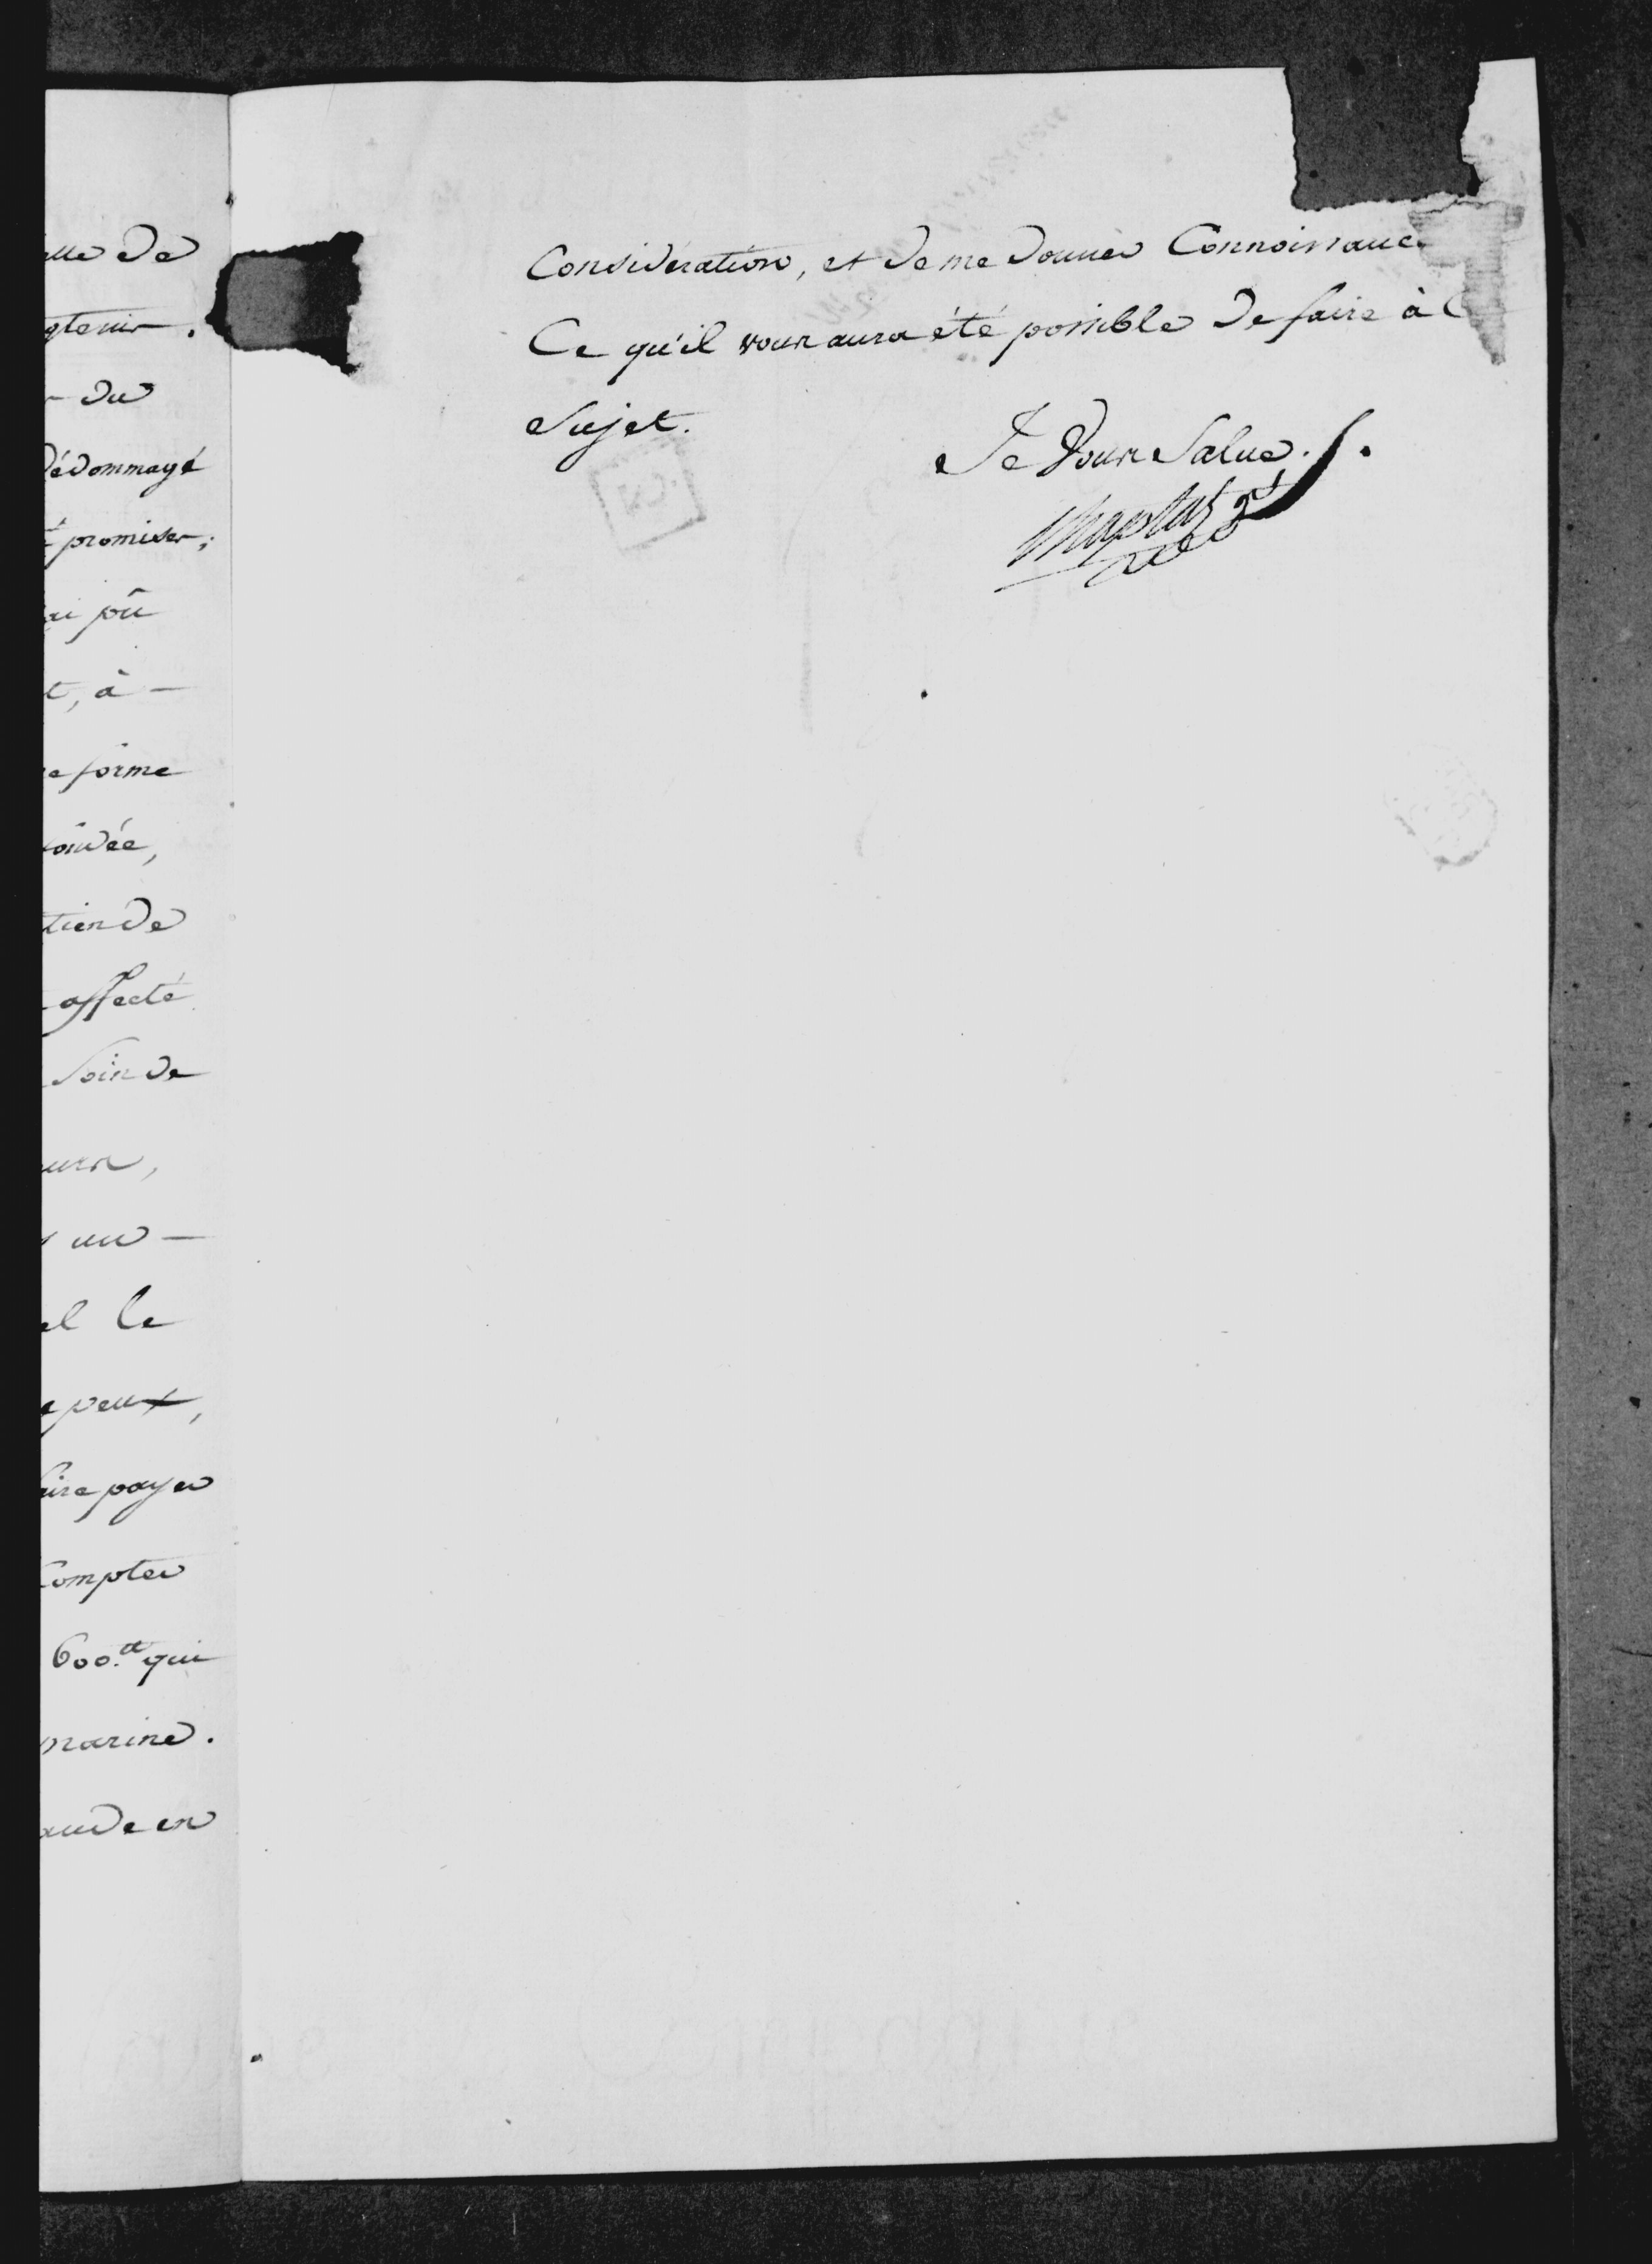 lle de
gtems.
du
dédommagé
promises;
ai pû
t, à —
e forme
ondée,
tien de
affecté
Soin de
eurs,
un —
el le
peut,
aire payer
Compter
600.tt qui
marine.
ande en
Considération, et de me donner Connoissance
Ce qu'il vous aura été possible de faire à C
Sujet.
Je Vous Salue.
Chaptal